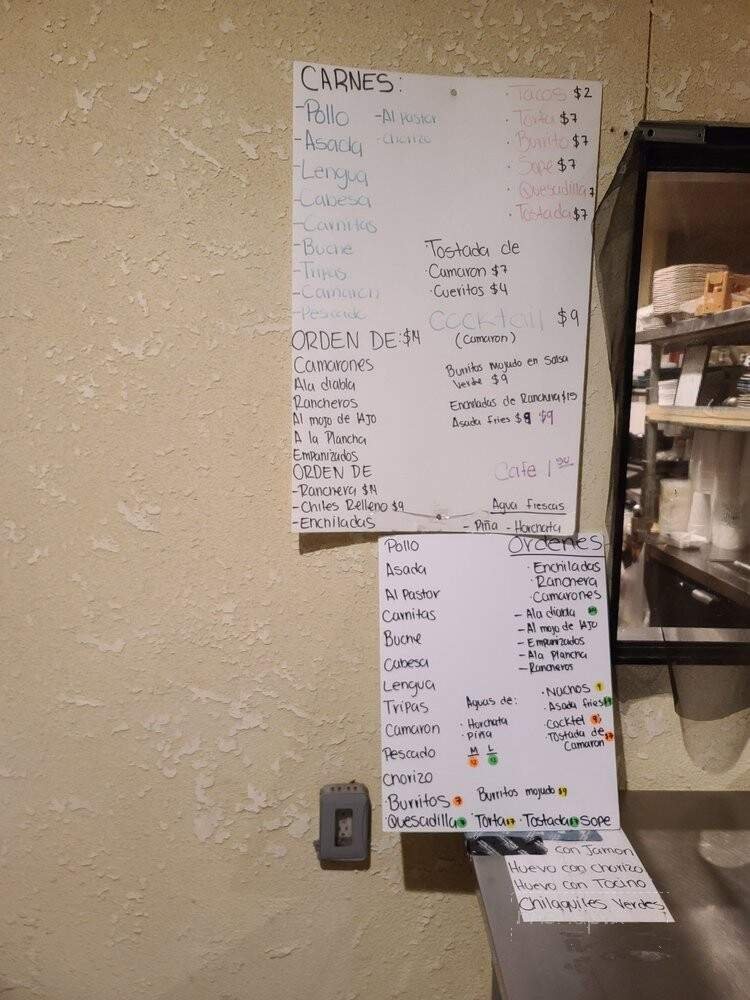 CARNES:
-Pollo -Al Pastor
-Asada -Chorizo
-Lengua
-Cabesa
-Carnitas
-Buche
-Tripas
-Camaron
-Pescado
· Tacos $2
· Torta $7
· Burrito $7
· Sope $7
· Quesadilla 7
· Tostada $7
Tostada de
·Camaron $7
·Cueritos $4
COCKTail $9
(Camaron)
ORDEN DE: $14
Camarones
Ala diabla
Rancheros
Al mojo de AJO
A la Plancha
Empanizados
ORDEN DE
-Ranchera $14
-Chiles Relleno $9
-Enchiladas
Burritos mojado en Salsa
Verde $9
Enchiladas de Ranchera $15
Asada Fries $9 $9
Cafe 1.50
Agua Frescas
- Piña - Horchata
Pollo
Asada
Al Pastor
Carnitas
Buche
Cabesa
Lengua
Tripas
Camaron
Pescado
Chorizo
Ordenes
· Enchiladas
· Ranchera
· Camarones
- Ala diabla
- Al mojo de AJO
- Empanizados
- Ala Plancha
- Rancheros
Aguas de:
· Horchata
· Piña
M L
· Nachos 9
· Asada fries
· Cocktel 9
· Tostada de
Camaron
· Burritos 7 Burritos mojado $9
· Quesadilla · Torta $7 · Tostada · Sope
con Jamon
Huevo con Chorizo
Huevo con Tocino
Chilaquiles Verdes